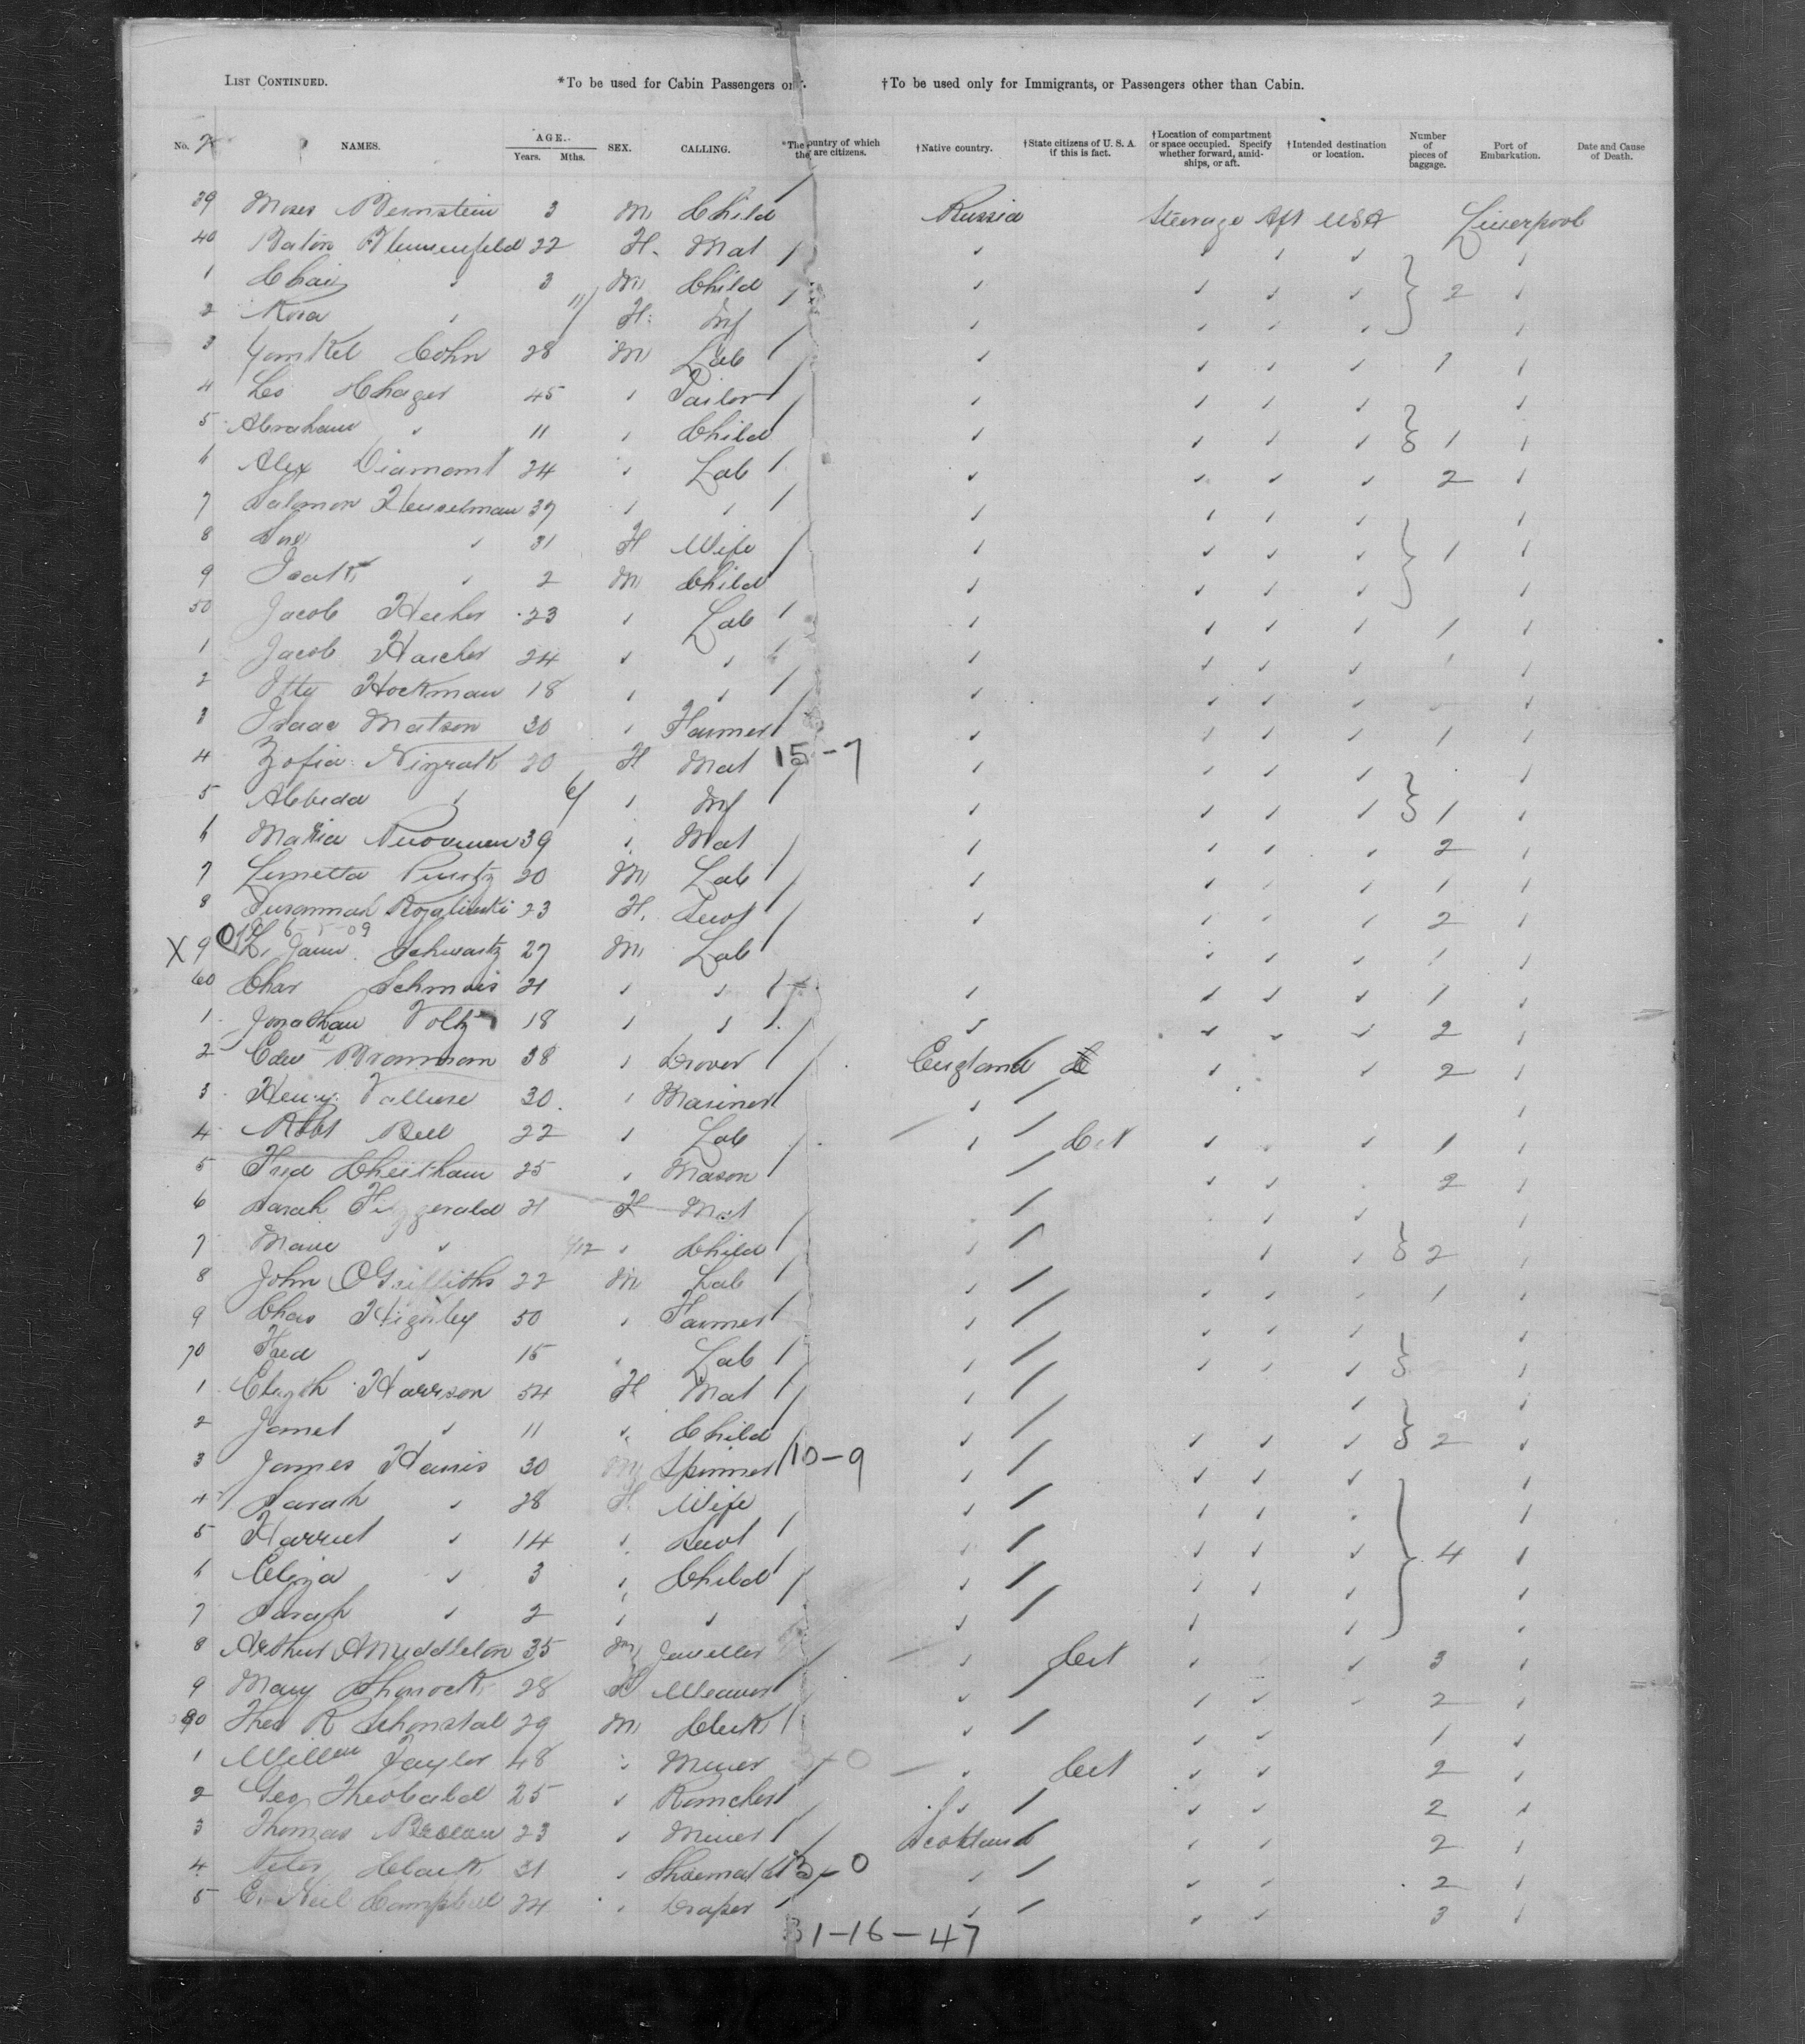 LIST CONTINUED. *To be used for Cabin Passengers on †To be used only for Immigrants, or Passengers other than Cabin.
No. NAMES. AGE. Years. Mths. SEX. CALLING. *The country of which they are citizens. †Native country. †State citizens of U. S. A. if this is fact. †Location of compartment or space occupied. Specify whether forward, amidships, or aft. †Intended destination or location. Number of pieces of baggage. Port of Embarkation. Date and Cause of Death.
39 Moses Bernstein 3 M Child Russia Steerage Aft USA Liverpool
40 Blumenfeld 22 F. Mat
1 Chai " 3 M Child 2
2 Rosa " 11/ F. Inf
3 Yomkel Cohn 28 M Lab 1
4 Chager 45 " Tailor
5 Abraham " 11 " Child 1
6 Alex Diamomt 24 " Lab 2
7 Salomon Heuselman 37 " "
8 " 31 F Wife 1
9 Isak " 2 M Child
50 Jacob Hecker 23 " Lab 1
1 Jacob Harcher 24 " " 1
2 Itty Hockman 18 " "
3 Isaac Matson 30 " Farmer 1
4 Zofia 20 F Mat 15-7
5 " 6/ " Inf 1
6 Maria 39 " Mat 2
7 20 M Lab 1
8 Susannah Rozalinski 23 F. Servt 2
6-5-09
X 9 Schwartz 27 M Lab 1
60 Char Schmuis 21 " " 1
1 Jonathan Voltz 18 " " 2
2 Edwd Brannan 38 " Drover England 2
3 Henry Vallure 30 " Mariner
4 Robt Bell 22 " Lab Cit 1
5 Fred Cheetham 25 " Mason 2
6 Sarah Fitzgerald 21 F Mat
7 " /12 " Child 2
8 John O Griffiths 22 M Lab 1
9 Chas Hignley 50 " Farmer
70 Fred " 15 " Lab
1 Elizth Harrson 54 F Mat
2 Janet " 11 " Child 2
3 James Harris 30 M Spinner 10-9
4 Sarah " 28 F. Wife
5 Harriet " 14 " Servt 4
6 Eliza " 3 " Child
7 Sarah " 2 " "
8 Arthur A Middleton 35 M Jeweller Cit 3
9 Mary Shorrock 28 F Weaver 2
80 Theo R Schonstal 29 M Clerk 1
1 Willm Taylor 48 " Miner Cit 2
2 Geo Theobald 25 " Rancher 2
3 Thomas Brown 23 " Miner Scotland 2
4 Peter Clark 31 " Shoemaker 13-0 2
5 Neil Campbell 24 " Draper 3
31-16-47